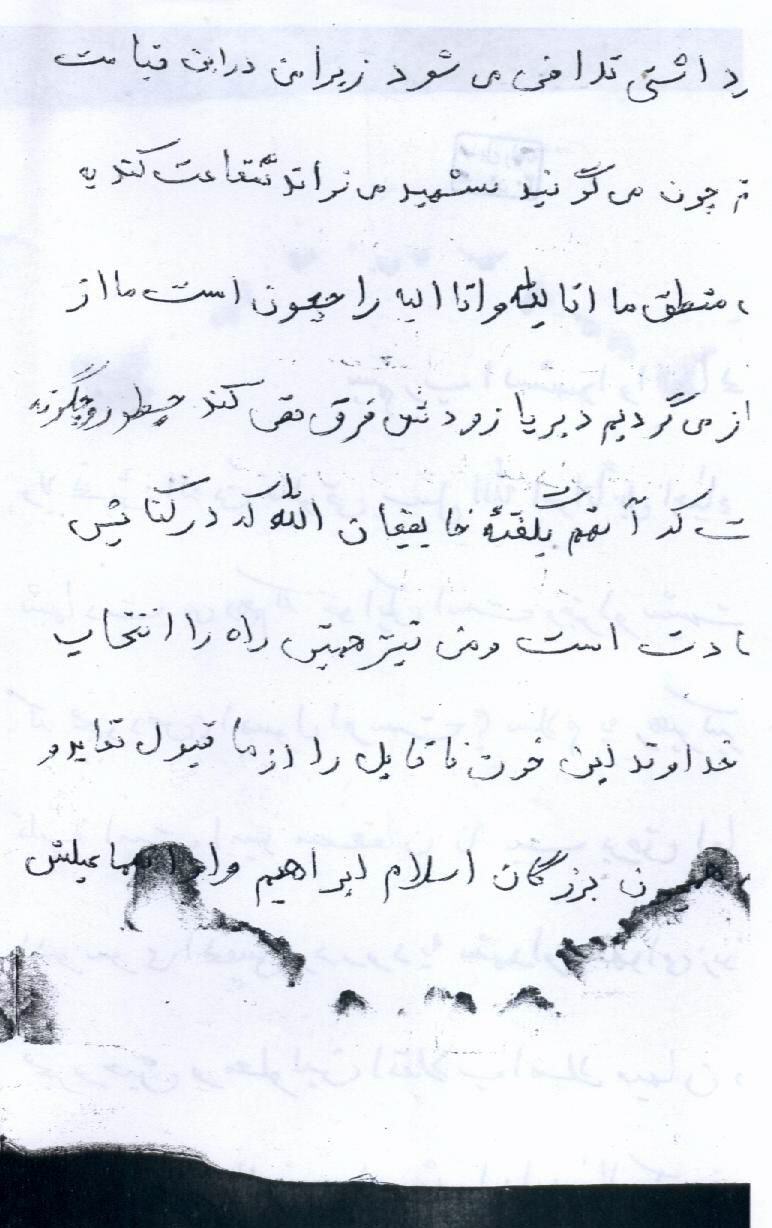 رداشتی تلافی می شود زیرا من در این قیامت
م چون می گویند شهید می تواند شفاعت کند به
منطق ما انا لله و انا الیه راجعون است ما از
از می گردیم دیر یا زودش فرق نمی کند چطور و چگونه
ت که آنهم بگفتهٔ الله که در کتابش
ادت است ومن نیز همین راه را انتخاب
خداوند این خون ناقابل را از ما قبول نماید و
همچون بزرگان اسلام ابراهیم واو اسماعیلش